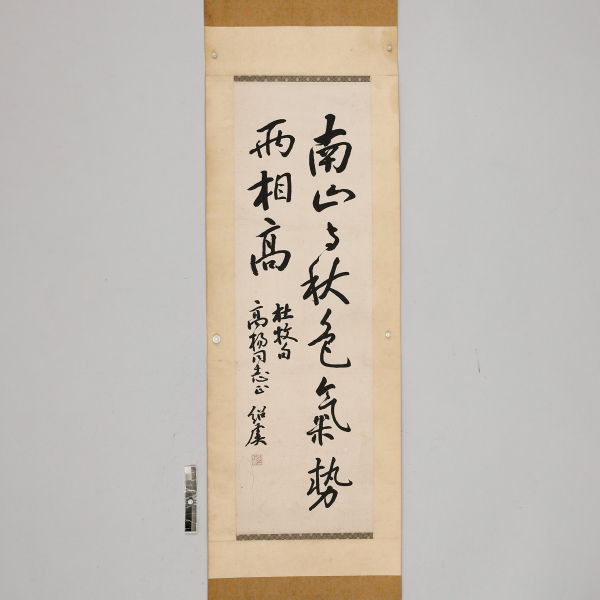 南山与秋色氣勢
兩相高
杜牧句
高揚同志正 紹虞